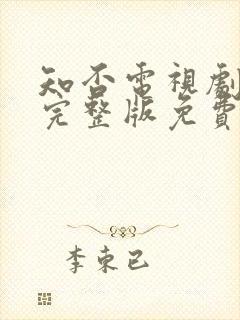 知否電視劇
完整版免費
李束已